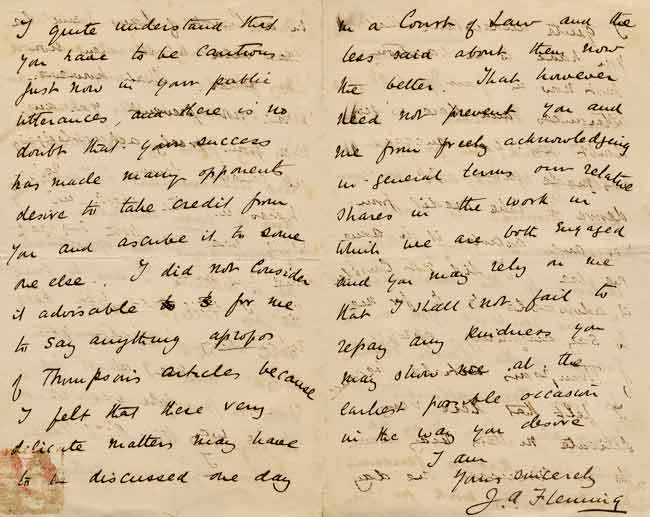 I quite understand that
you have to be cautious
just now in your public
utterances, and there is no
doubt that your success
has made many opponents
desire to take credit from
you and ascribe it to some
one else. I did not consider
it advisable to for me
to say anything apropos
of Thompson's articles because
I felt that these very
delicate matters may have
to be discussed one day
in a Court of Law and the
less said about them now
the better. That however
need not prevent you and
me from freely acknowledging
in general terms our relative
shares in the work in
which we are both engaged
and you may rely on me
that I shall not fail to
repay any kindness you
may show me at the
earliest possible occasion
in the way you desire
I am
Yours sincerely
J. A. Fleming